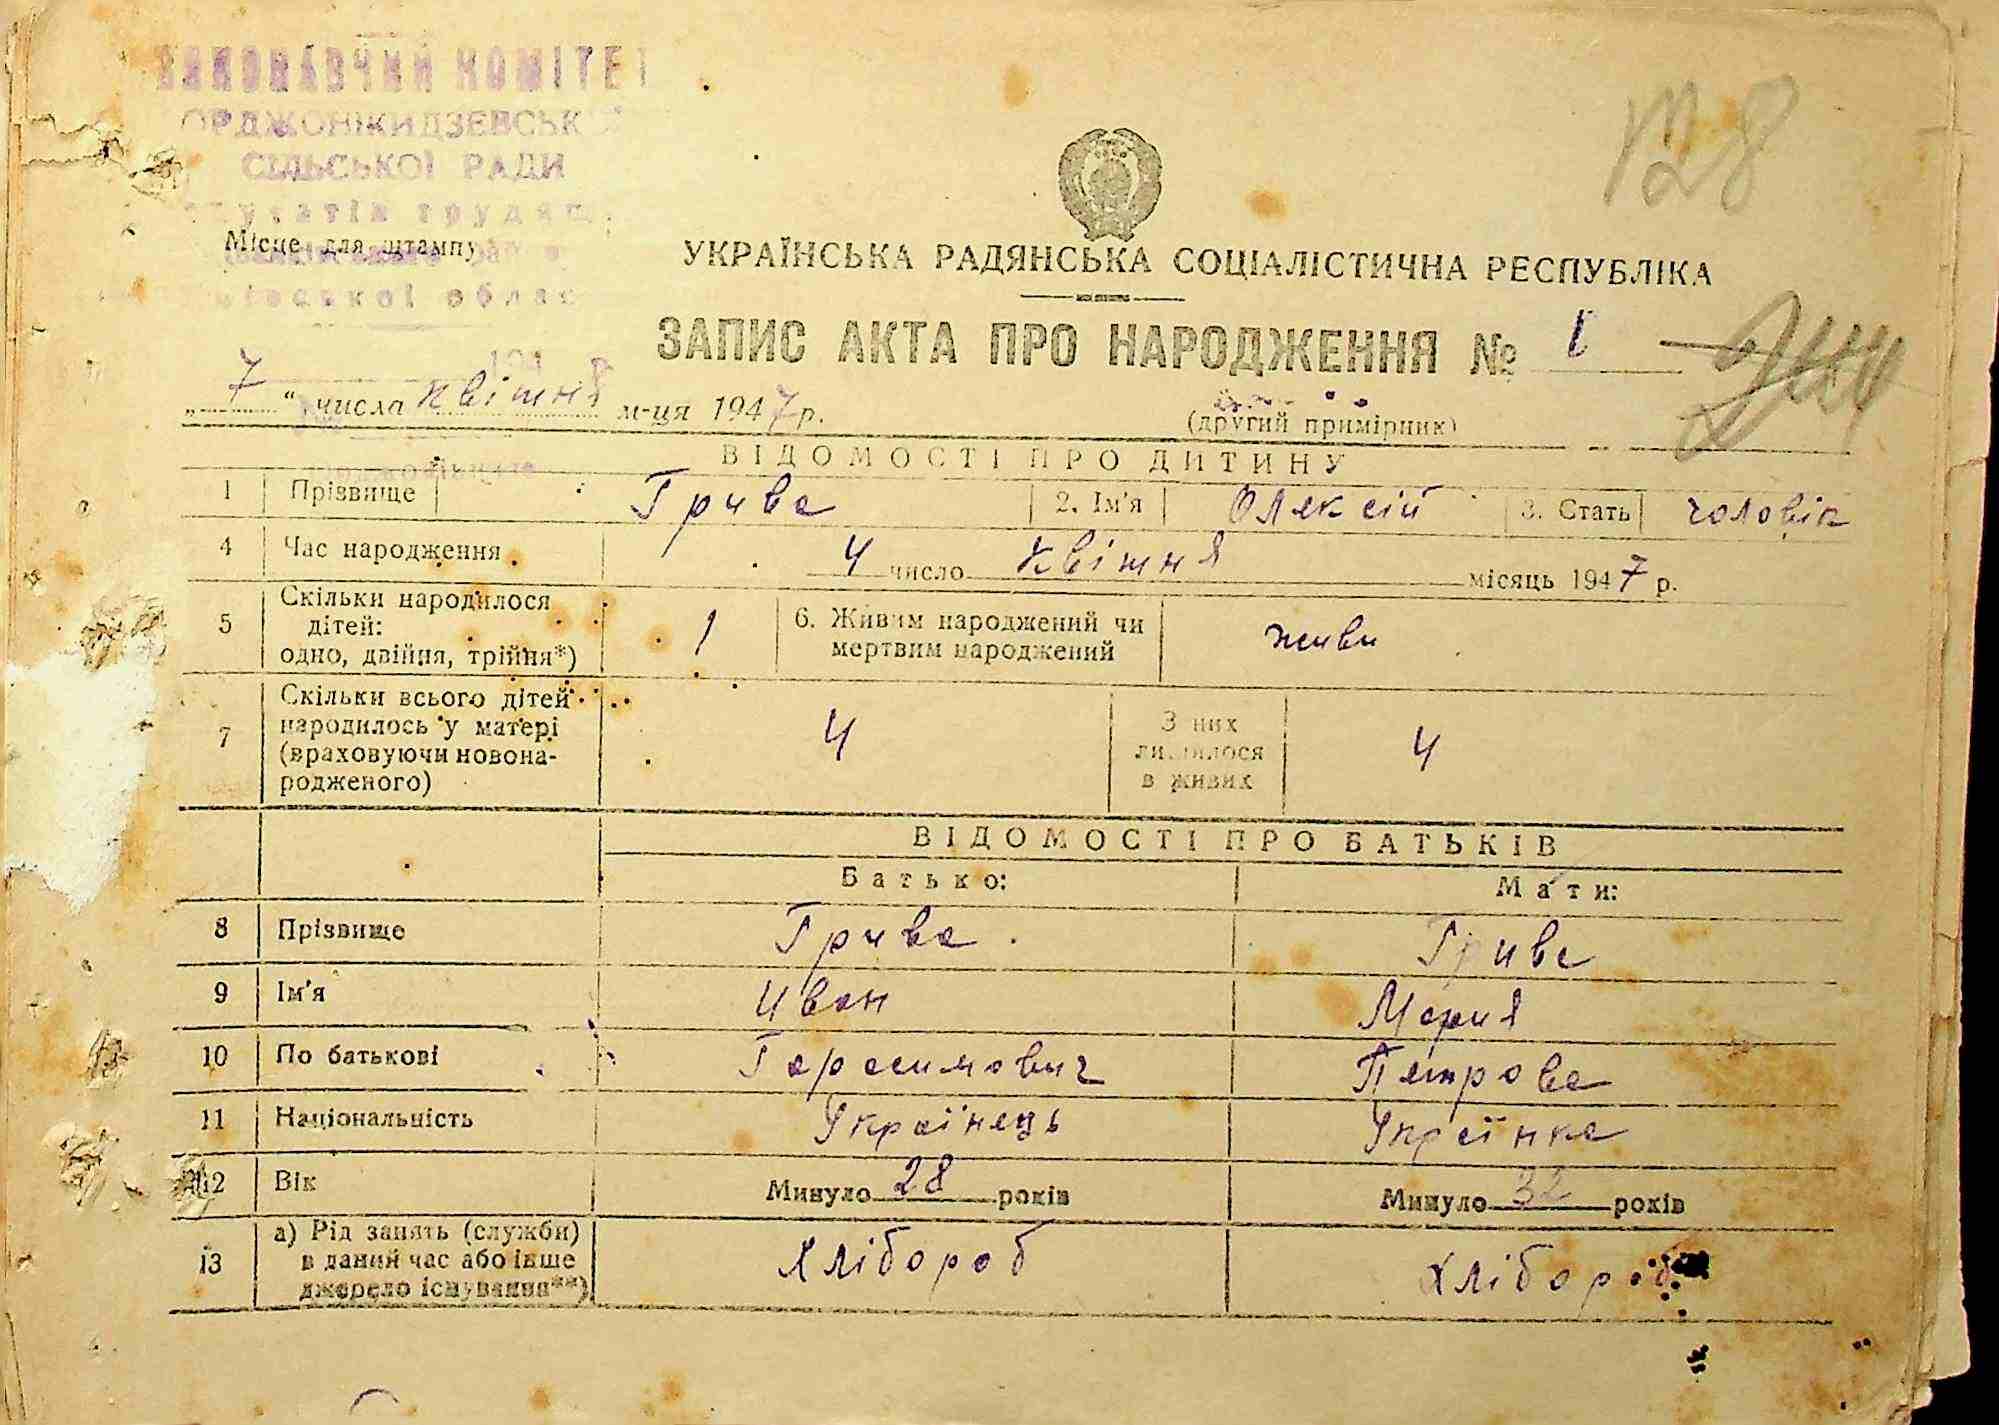 ВИКОНАВЧИЙ КОМІТЕТ
ОРДЖОНІКИДЗЕВСЬКОЇ
СІЛЬСЬКОЇ РАДИ
Місце для штампу
128
УКРАЇНСЬКА РАДЯНСЬКА СОЦІАЛІСТИЧНА РЕСПУБЛІКА
ЗАПИС АКТА ПРО НАРОДЖЕННЯ № 1
„ 7 “ числа квітня м-ця 1947 р.
(другий примірник)
ВІДОМОСТІ ПРО ДИТИНУ
1 Прізвище Грива 2. Ім'я Олексій 3. Стать чоловік
4 Час народження 4 число квітня місяць 1947 р.
5 Скільки народилося дітей: одно, двійня, трійня*) 1 6. Живим народжений чи мертвим народжений живи
7 Скільки всього дітей народилось у матері (враховуючи новонародженого) 4 З них лишилося в живих 4
ВІДОМОСТІ ПРО БАТЬКІВ
Батько: Мати:
8 Прізвище Грива Грива
9 Ім'я Иван Мария
10 По батькові Герасимович Петрова
11 Національність Українець Українка
12 Вік Минуло 28 років Минуло 32 років
13 а) Рід занять (служби) в даний час або інше джерело існування**) Хлібороб Хлібороб